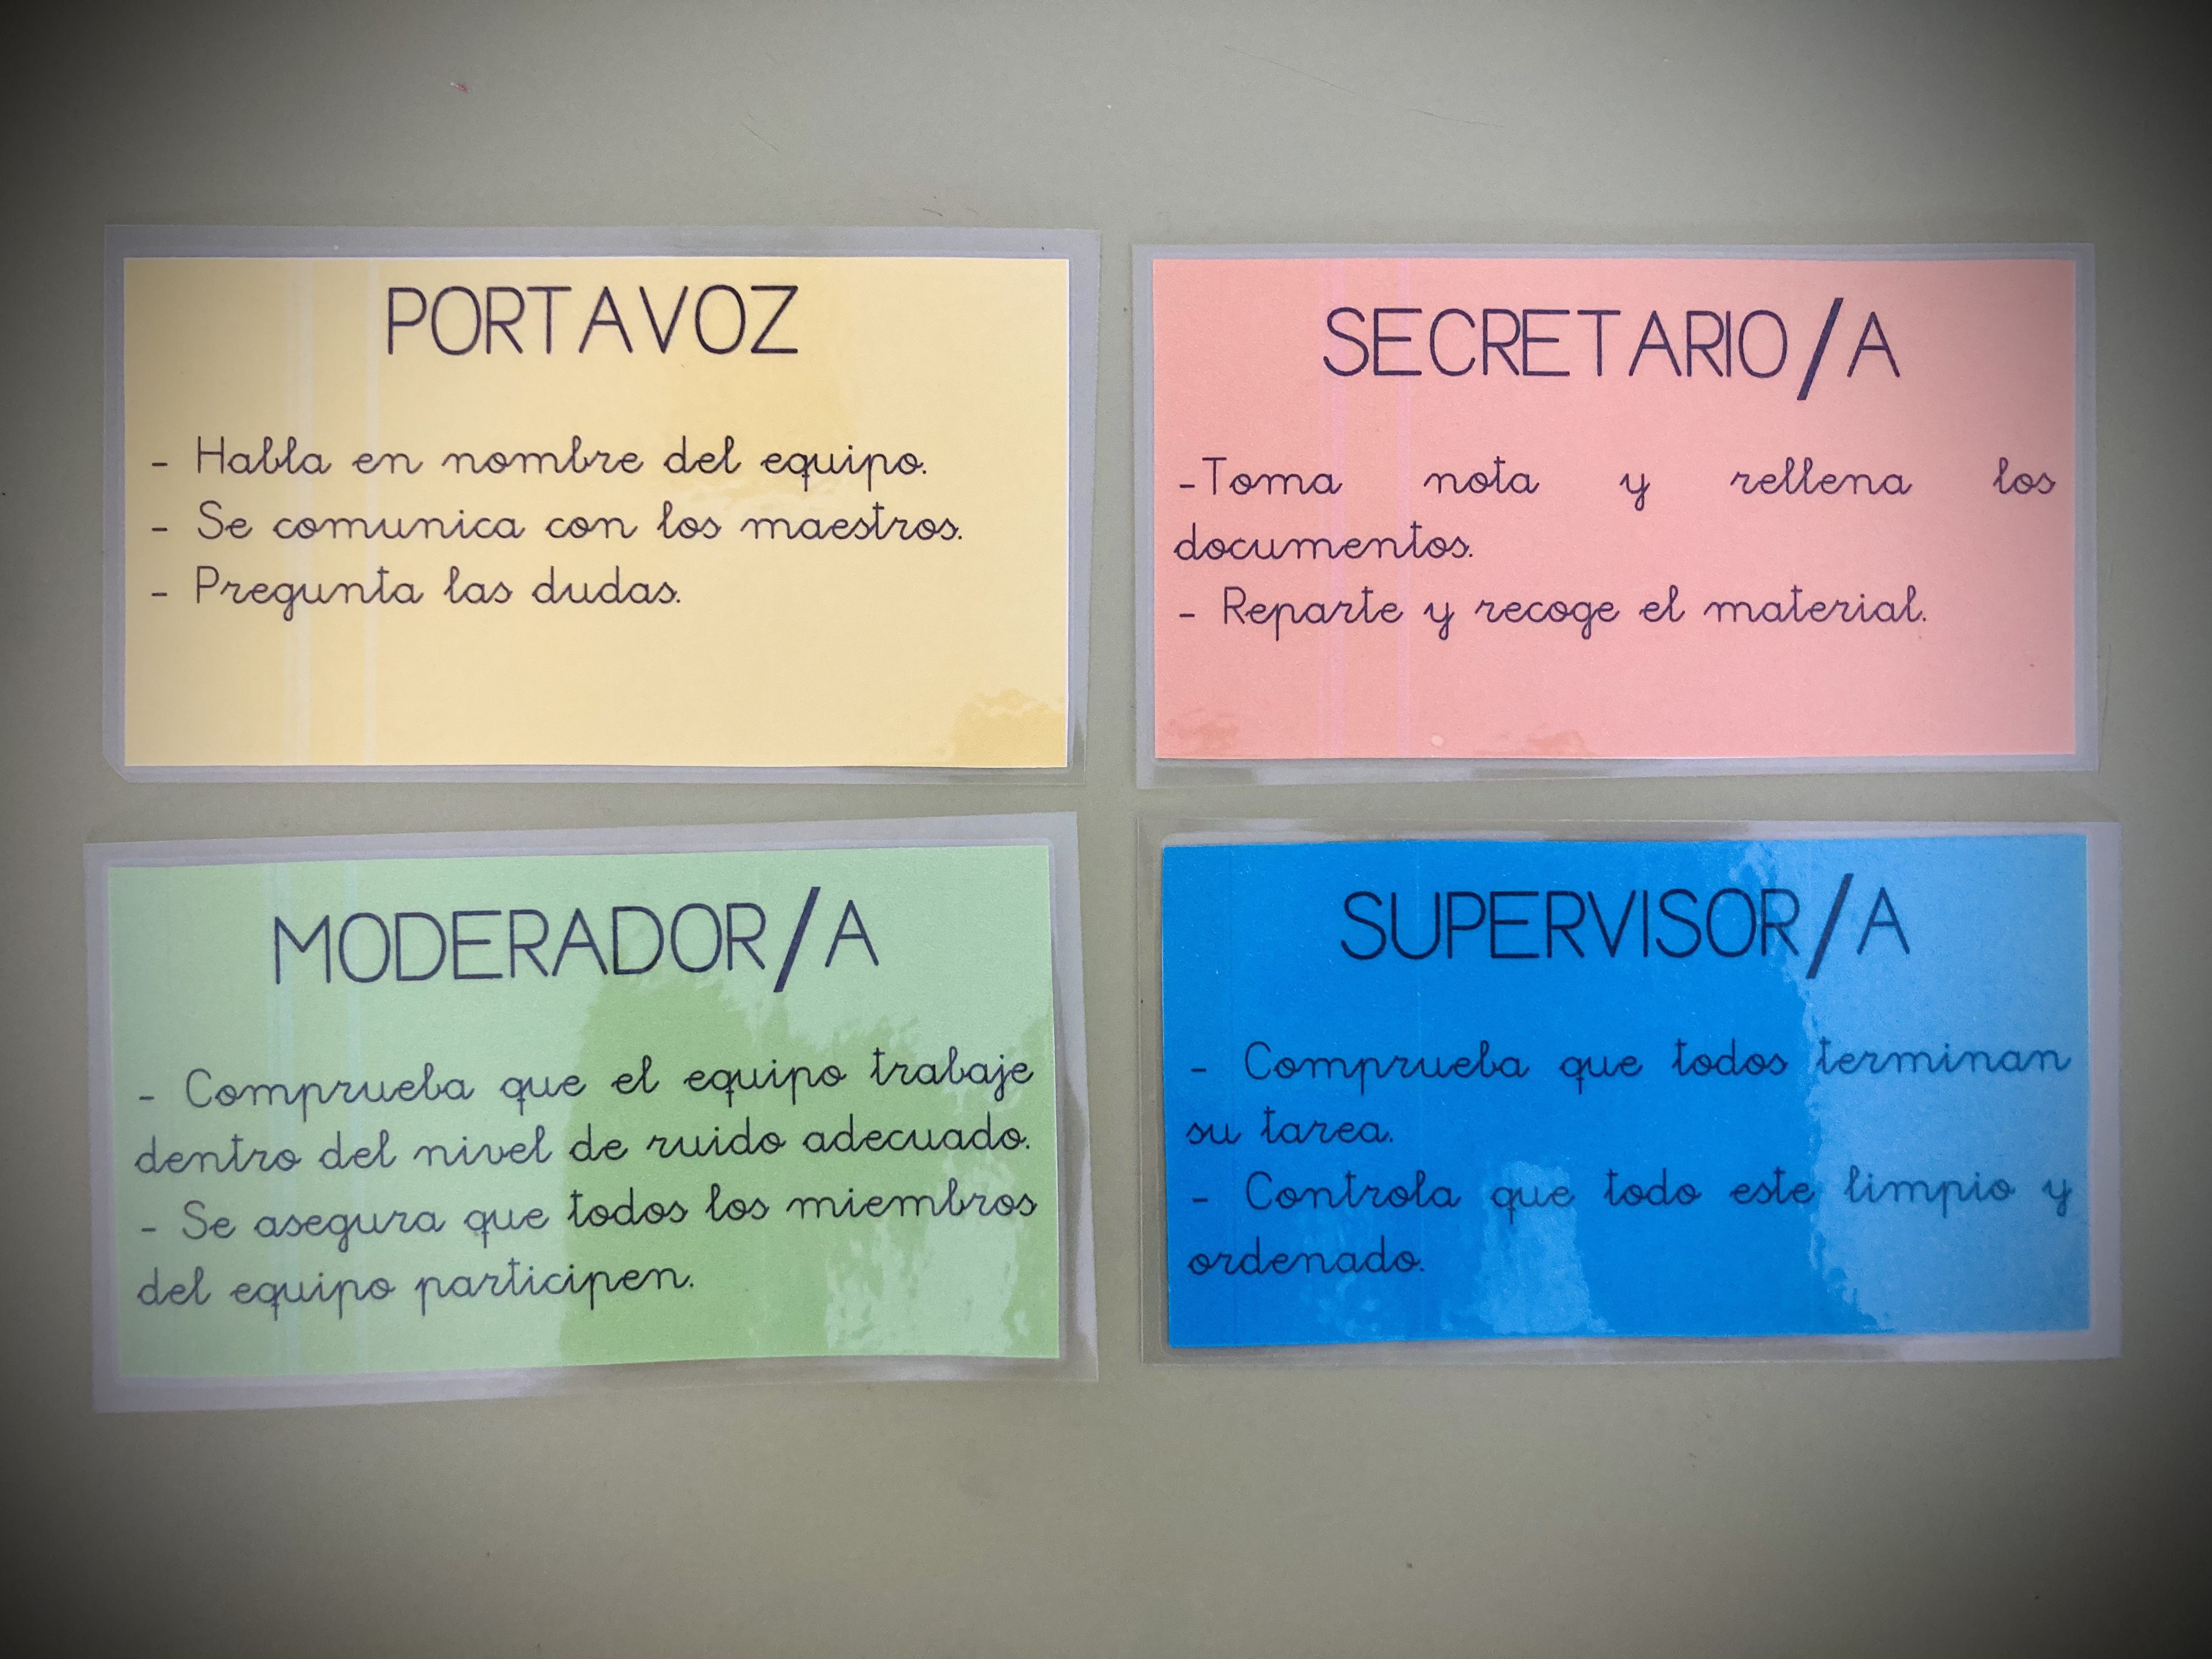 PORTAVOZ
- Habla en nombre del equipo.
- Se comunica con los maestros.
- Pregunta las dudas.
SECRETARIO/A
-Toma nota y rellena los
documentos.
- Reparte y recoge el material.
MODERADOR/A
- Comprueba que el equipo trabaje
dentro del nivel de ruido adecuado.
- Se asegura que todos los miembros
del equipo participen.
SUPERVISOR/A
- Comprueba que todos terminan
su tarea.
- Controla que todo este limpio y
ordenado.